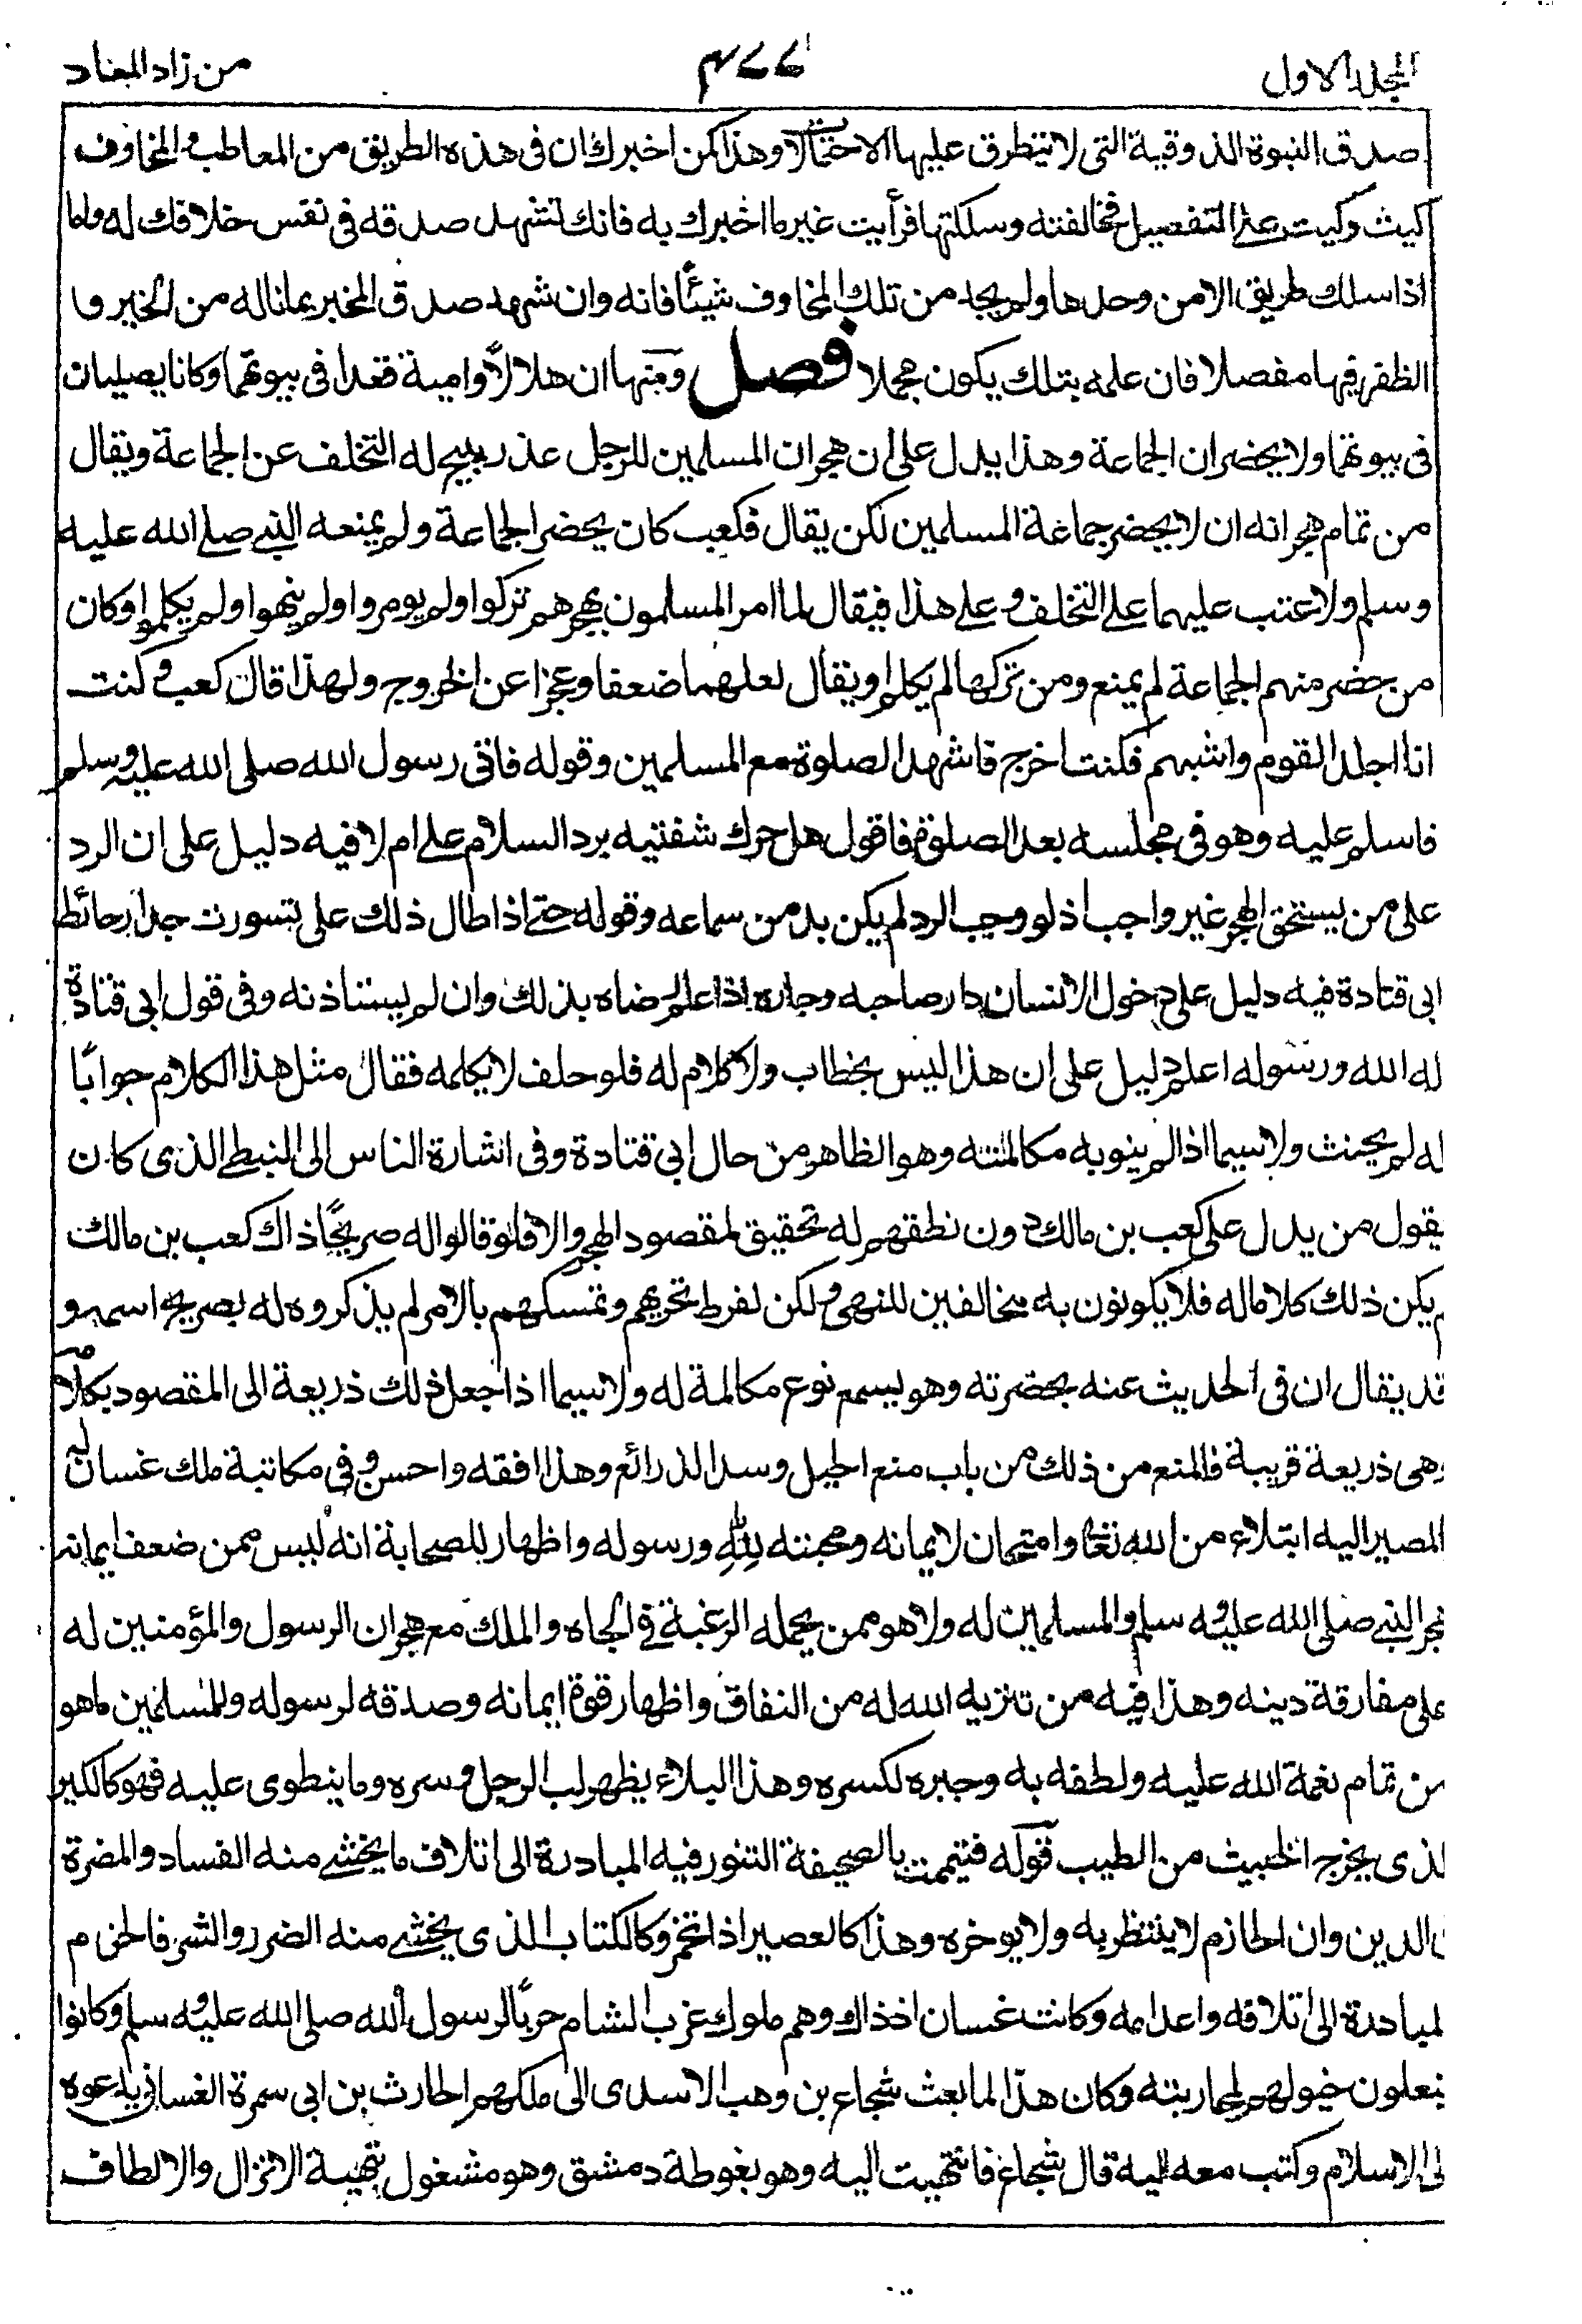 المجلد الاول ٤٧٧ من زاد المعاد
صدق النبوة الذوقية التى لا تتطرق عليها الاحتمالات وهذا كمن اخبرك ان فى هذه الطريق من المعاطب والمخاوف
كيت وكيت على التفصيل فخالفته وسلكتها فرأيت غير ما اخبرك به فانك تشهد صدقه فى نفس خلافك له واما
اذا سلك طريق الامن وحدها ولم يجد من تلك المخاوف شيئًا فانه وان شهد صدق المخبر بما ناله من الخير و
الظفر فيها مفصلا فان علمه بتلك يكون مجملا فصل ومنها ان هلالا وامية قعدا فى بيوتهما وكانا يصليان
فى بيوتهما ولا يحضران الجماعة وهذا يدل على ان هجران المسلمين للرجل عذر يبيح له التخلف عن الجماعة ويقال
من تمام هجرانه ان لا يحضر جماعة المسلمين لكن يقال فكعب كان يحضر الجماعة ولم يمنعه النبى صلى الله عليه
وسلم ولا عتب عليهما على التخلف وعلى هذا فيقال لما امر المسلمون بهجرهم تركوا ولم يومروا ولم ينهوا ولم يكلموا وكان
من حضر منهم الجماعة لم يمنع ومن تركها لم يكلم او يقال لعلهما ضعفا وعجزا عن الخروج ولهذا قال كعب وكنت
انا اجلد القوم واشبهم فكنت اخرج فاشهد الصلوة مع المسلمين وقوله فاتى رسول الله صلى الله عليه وسلم
فاسلم عليه وهو فى مجلسه بعد الصلوة فاقول هل حرك شفتيه برد السلام على ام لا فيه دليل على ان الرد
على من يستحق الهجر غير واجب اذ لو وجب الرد لم يكن بد من سماعه وقوله حتى اذا طال ذلك على تسورت جدار حائط
ابى قتادة فيه دليل على دخول الانسان دار صاحبه وجاره اذا علم رضاه بذلك وان لم يستاذنه وفى قول ابى قتادة
له الله ورسوله اعلم دليل على ان هذا ليس بخطاب ولا كلام له فلو حلف لا يكلمه فقال مثل هذا الكلام جوابًا
له لم يحنث ولا سيما اذا لم ينو به مكالمته وهو الظاهر من حال ابى قتادة وفى اشارة الناس الى النبطى الذى كان
يقول من يدل على كعب بن مالك دون نطقهم له تحقيق لمقصود الهجر والا فلو قالوا له صريحًا ذاك كعب بن مالك
م يكن ذلك كلاما له فلا يكونون به مخالفين للنهى ولكن لفرط تحريهم وتمسكهم بالامر لم يذكروه له بصريح اسمه و
قد يقال ان فى الحديث عنه بحضرته وهو يسمع نوع مكالمة له ولا سيما اذا جعل ذلك ذريعة الى المقصود بكلامه
وهى ذريعة قريبة فالمنع من ذلك من باب منع الحيل وسد الذرائع وهذا افقه واحسن وفى مكاتبة ملك غسان له
المصير اليه ابتلاء من الله تعا وامتحان لايمانه ومحبته لله ورسوله واظهار للصحابة انه ليس ممن ضعف ايمانه
بهجر النبى صلى الله عليه وسلم والمسلمين له ولا هو ممن يحمله الرغبة فى الجاه والملك مع هجران الرسول والمؤمنين له
على مفارقة دينه وهذا فيه من تنزيه الله له من النفاق واظهار قوة ايمانه وصدقه لرسوله وللمسلمين ما هو
من تمام نعمة الله عليه ولطفه به وجبره لكسره وهذا البلاء يظهر لب الرجل وسره وما ينطوى عليه فهو كالكير
لذى يخرج الخبيث من الطيب قوله فتيممت بالصحيفة التنور فيه المبادرة الى اتلاف ما يخشى منه الفساد والمضرة
الدين وان الحازم لا ينتظر به ولا يوخره وهذا كالعصير اذا تخمر وكالكتاب الذى يخشى منه الضرر والشر فالحزم
لمبادرة الى اتلافه واعدامه وكانت غسان اذ ذاك وهم ملوك عرب الشام حربًا لرسول الله صلى الله عليه وسلم وكانوا
ينعلون خيولهم لمحاربته وكان هذا لما بعث شجاع بن وهب الاسدى الى ملكهم الحارث بن ابى سمرة الغسانى يدعوه
لى الاسلام وكتب معه اليه قال شجاع فانتهيت اليه وهو بغوطة دمشق وهو مشغول بتهية الانزال والالطاف